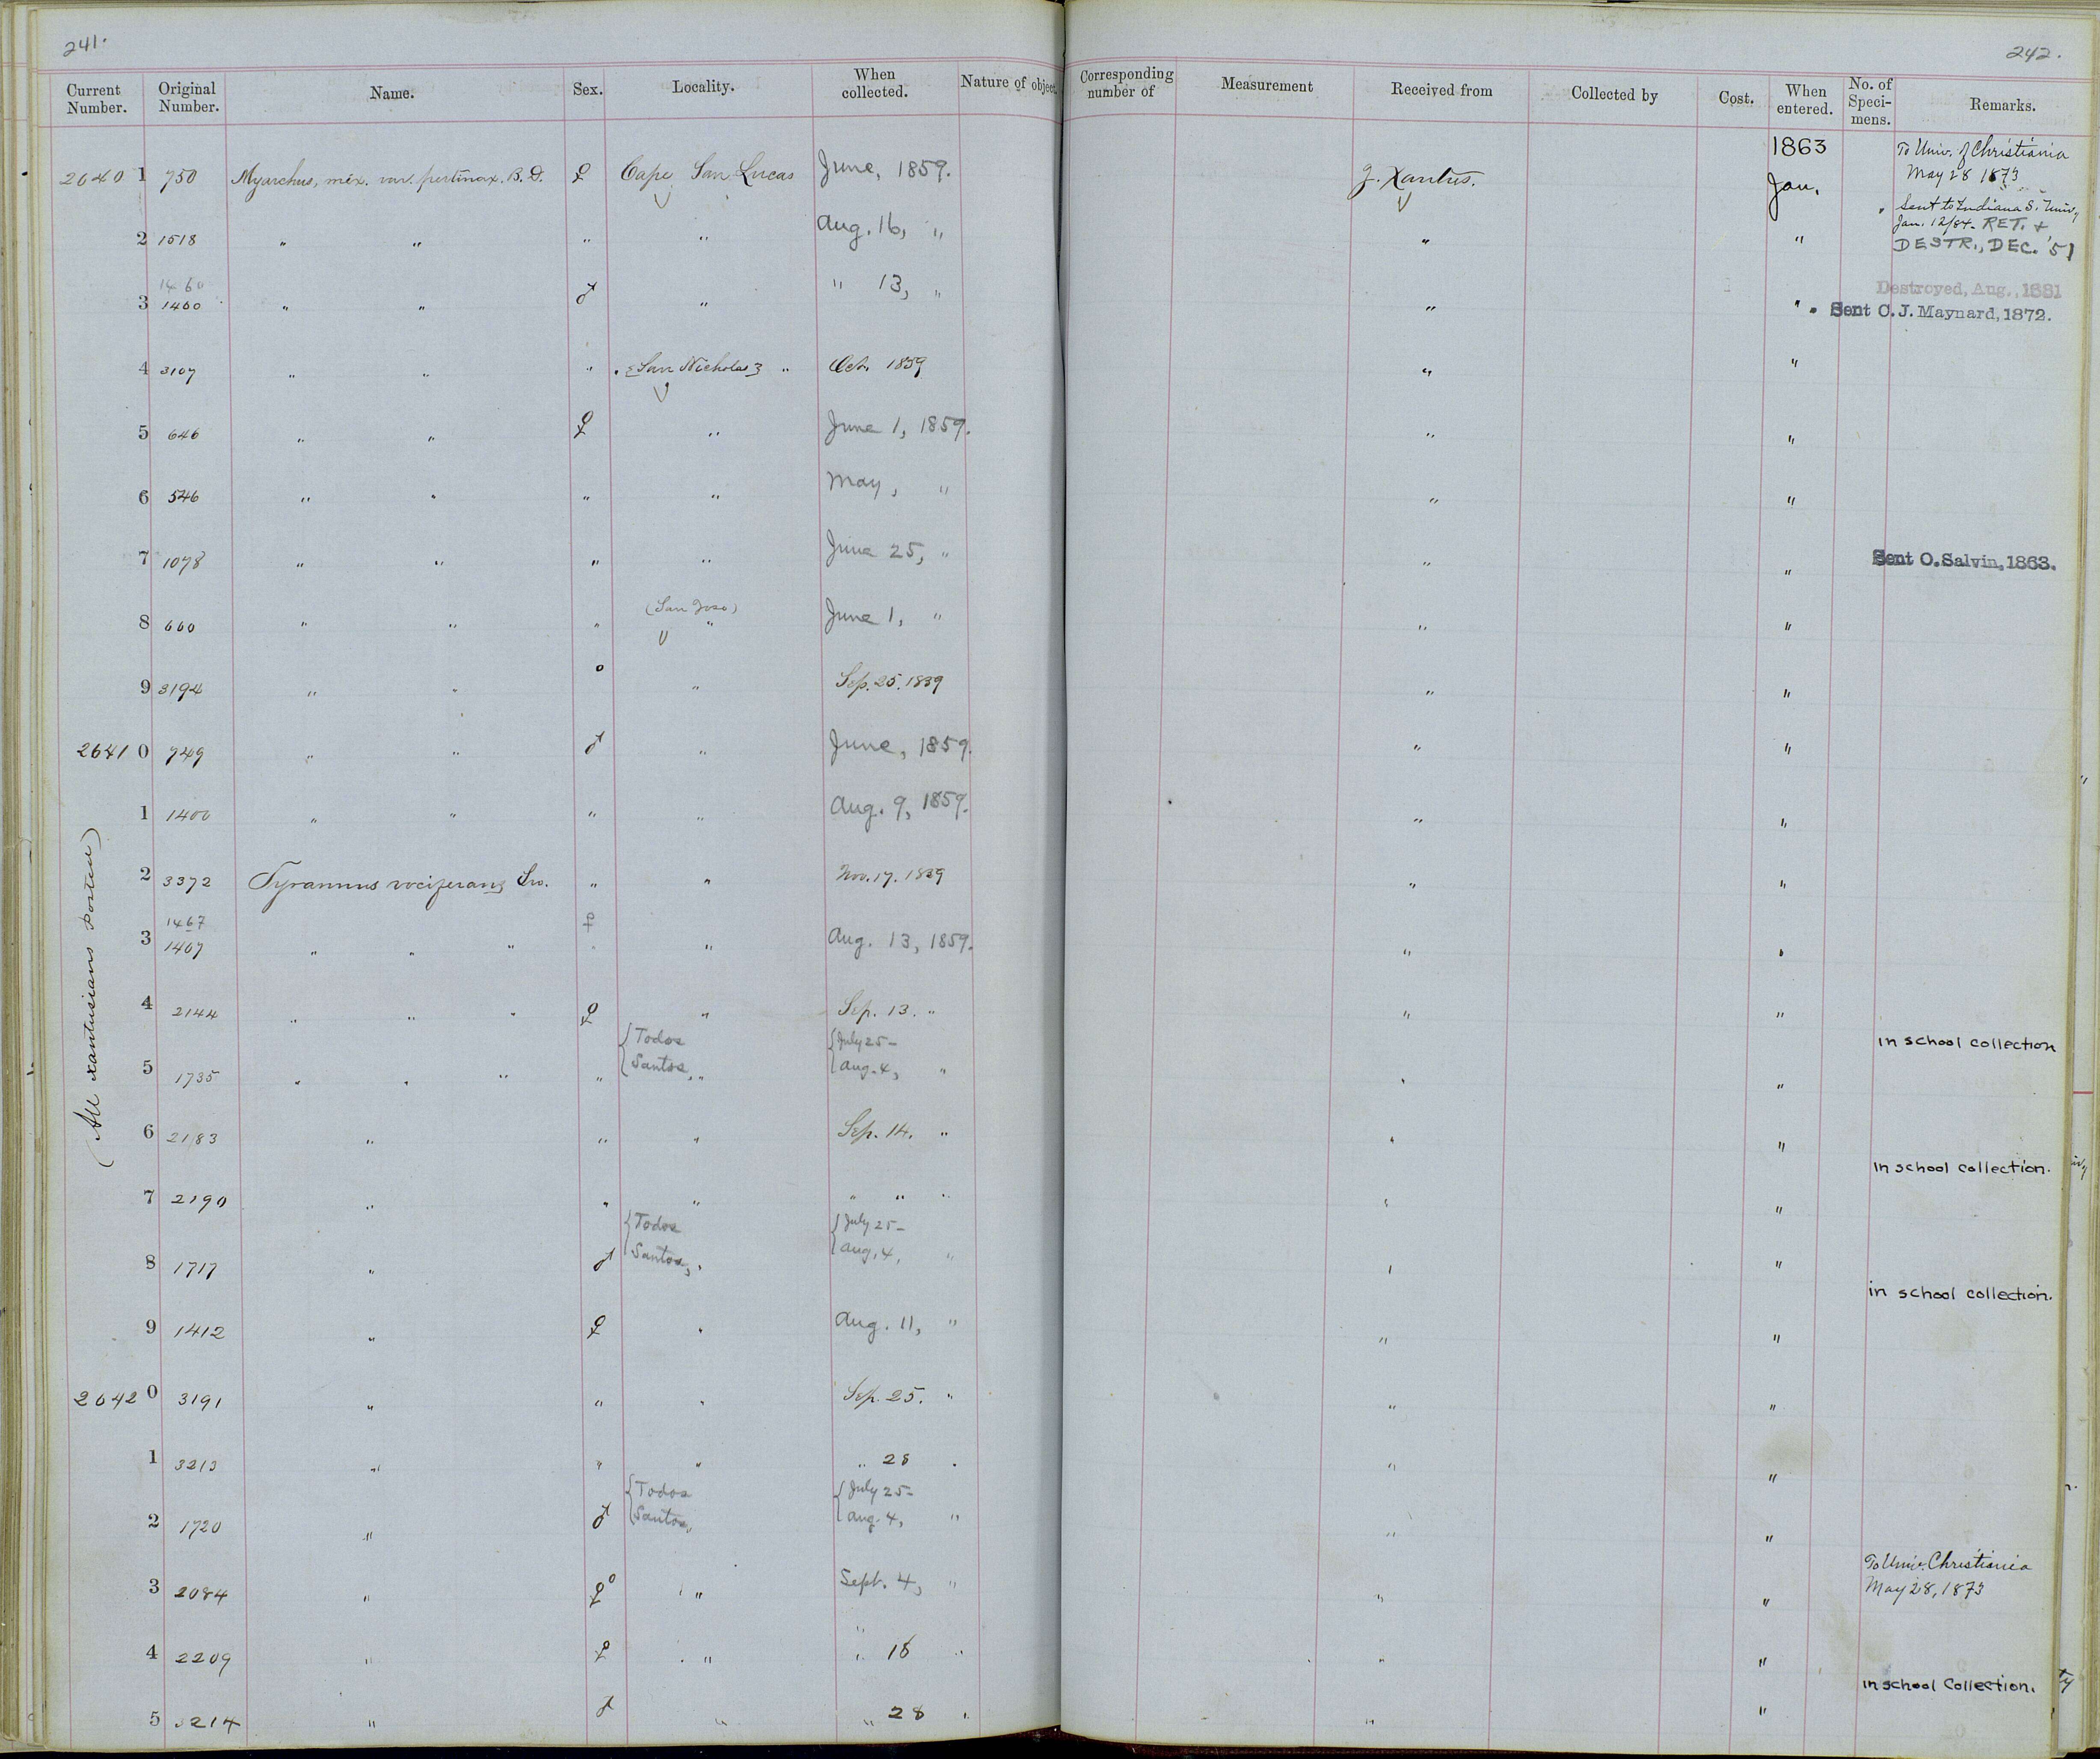 241.
242.
Current Number. Original Number. Name. Sex. Locality. When collected. Nature of object. Corresponding number of Measurement Received from Collected by Cost. When entered. No. of Speci-mens. Remarks.
1863
26401 750 Myarchus, mex. var. pertinax. B. D. ♀ Cape San Lucas June, 1859. J. Xantus. Jan. To Univ. of Christiania May 28 1873
2 1518 " " " " Aug. 16, " " " Sent to Indiana S. Univ. Jan. 12/84. RET. + DESTR., DEC. '51
1460
3 1400 " " ♂ " " 13, " " " Destroyed, Aug., 1881
Sent C. J. Maynard, 1872.
4 3107 " " " San Nicholas " Oct. 1859 " "
5 646 " " ♀ " June 1, 1859. " "
6 546 " " " " May, " " "
7 1078 " " " " June 25, " " " Sent O. Salvin, 1863.
8 660 " " " (San Jose) " June 1, " " "
9 3194 " " o " Sep. 25. 1859 " "
26410 749 " " ♂ " June, 1859. " "
1 1400 " " " " Aug. 9, 1859. " "
2 3372 Tyrannus vociferans Sw. " " Nov. 17. 1859 " "
1467 ♀
3 1407 " " " " Aug. 13, 1859. " "
4 2144 " " " ♀ " Sep. 13. " " "
in school collection
5 1735 " " " " {Todos Santos, " {July 25- Aug. 4, " " "
6 2183 " " " Sep. 14. " " "
in school collection.
7 2190 " " " " " " " "
8 1717 " ♂ {Todos Santos, " {July 25- Aug. 4, " " "
in school collection.
9 1412 " ♀ " Aug. 11, " " "
26420 3191 " " " Sep. 25. " " "
1 3213 " " " " 28 " " "
2 1720 " ♂ {Todos Santos, {July 25- Aug. 4, " " "
3 2084 " ♀ o " Sept. 4, " " " To Univ. Christiania May 28, 1873
4 2209 " ♀ " " 18 " " "
in school Collection.
5 3214 " ♂ " " 28 " " "
(All xantusians posted)